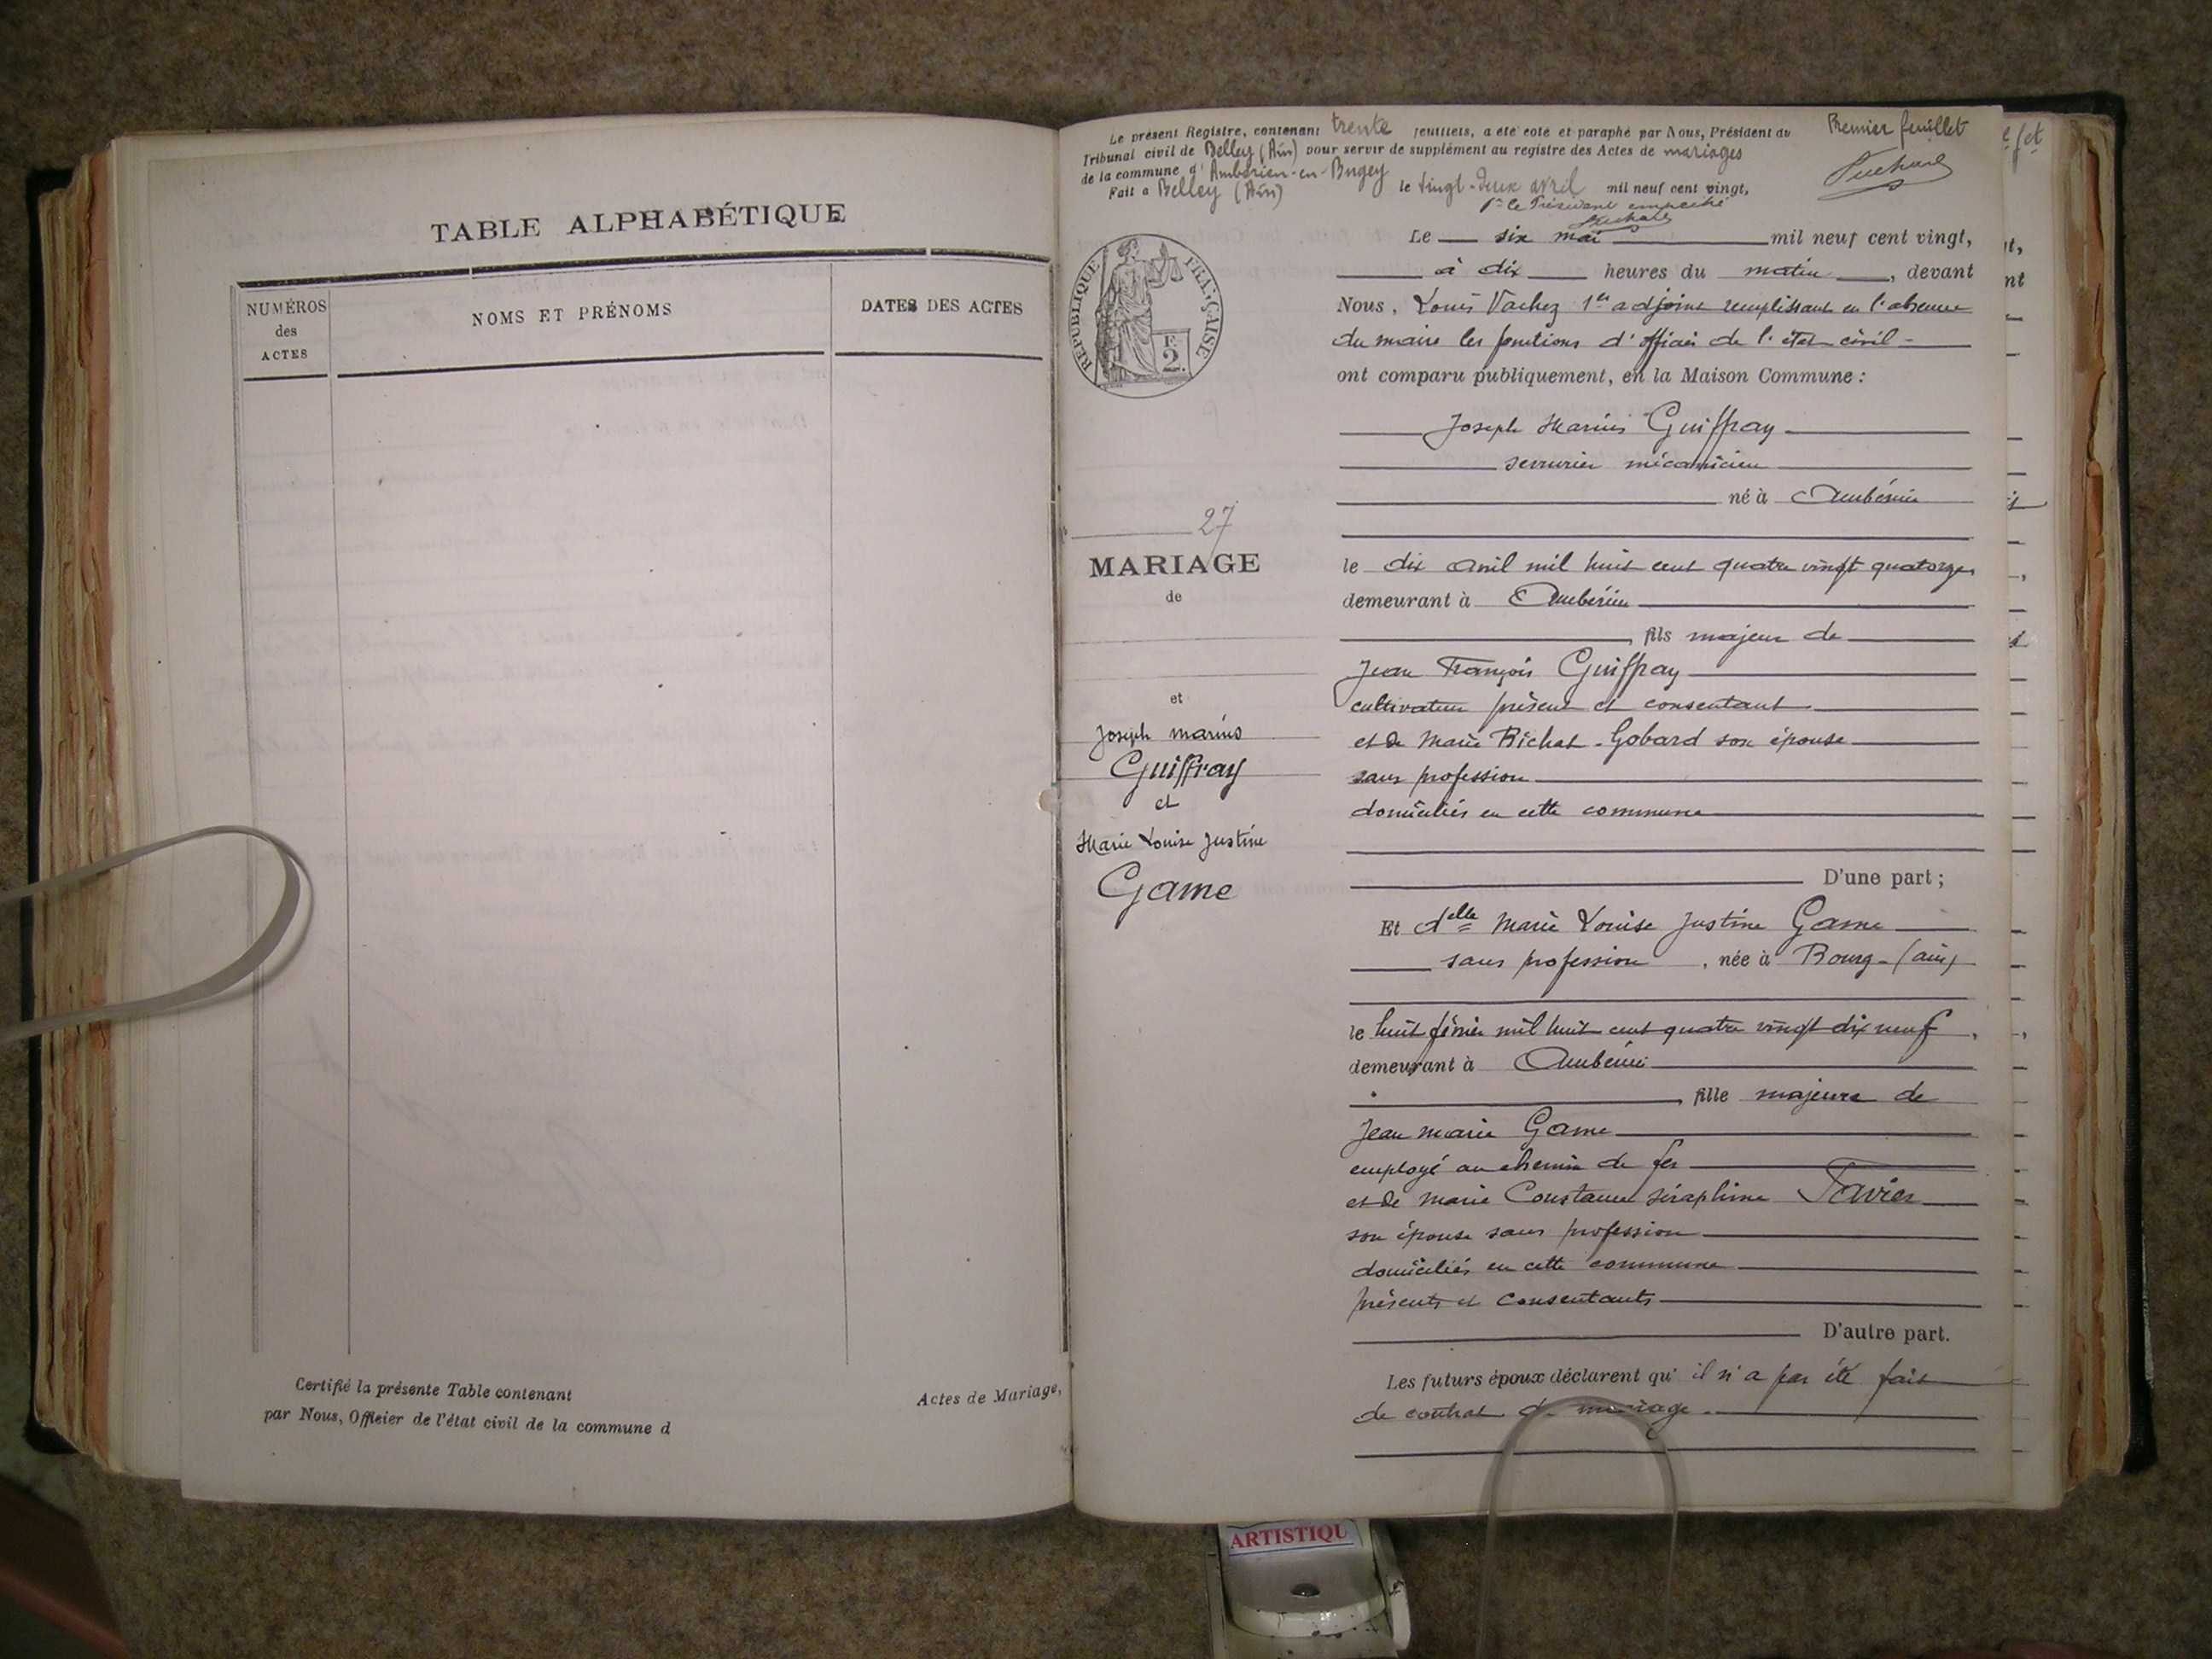 TABLE ALPHABÉTIQUE
NUMÉROS
des
ACTES
NOMS ET PRÉNOMS
DATES DES ACTES
Certifié la présente Table contenant
Actes de Mariage,
par Nous, Officier de l'état civil de la commune d
Le présent Registre, contenant trente feuillets, a été coté et paraphé par Nous, Président du
Tribunal civil de Belley (Ain) pour servir de supplément au registre des Actes de mariages
de la commune d'Ambérieu-en-Bugey
Fait à Belley (Ain) le vingt-deux avril mil neuf cent vingt,
Premier feuillet
Pr le Président empêché
REPUBLIQUE FRANÇAISE
F.
2.
Le six mai mil neuf cent vingt,
à dix heures du matin, devant
Nous, Louis Vachez 1er adjoint remplissant en l'absence
du maire les fonctions d'officier de l'état civil
ont comparu publiquement, en la Maison Commune :
Joseph Marius Guiffray
serrurier mécanicien
né à Ambérieu
le dix avril mil huit cent quatre vingt quatorze
demeurant à Ambérieu
fils majeur de
Jean François Guiffray
cultivateur présent et consentant
et de Marie Bichat-Gobard son épouse
sans profession
domiciliés en cette commune
D'une part ;
27
MARIAGE
de
et
Joseph Marius
Guiffray
et
Marie Louise Justine
Game
Et delle Marie Louise Justine Game
sans profession, née à Bourg-(ain)
le huit février mil huit cent quatre vingt dix neuf,
demeurant à Ambérieu
fille majeure de
Jean Marie Game
employé au chemin de fer
et de Marie Constance Séraphine Favier
son épouse sans profession
domiciliés en cette commune
présents et consentants
D'autre part.
Les futurs époux déclarent qu'il n'a pas été fait
de contrat de mariage.
ARTISTIQU